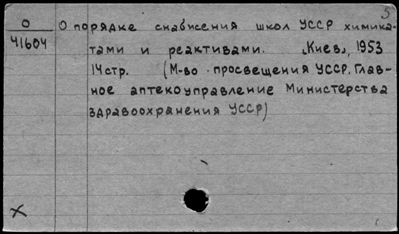 5
О
41604
О порядке снабжения школ УССР химика-
тами и реактивами. Киев, 1953
14 стр. (М-во просвещения УССР. Глав-
ное аптекоуправление Министерства
здравоохранения УССР)
X